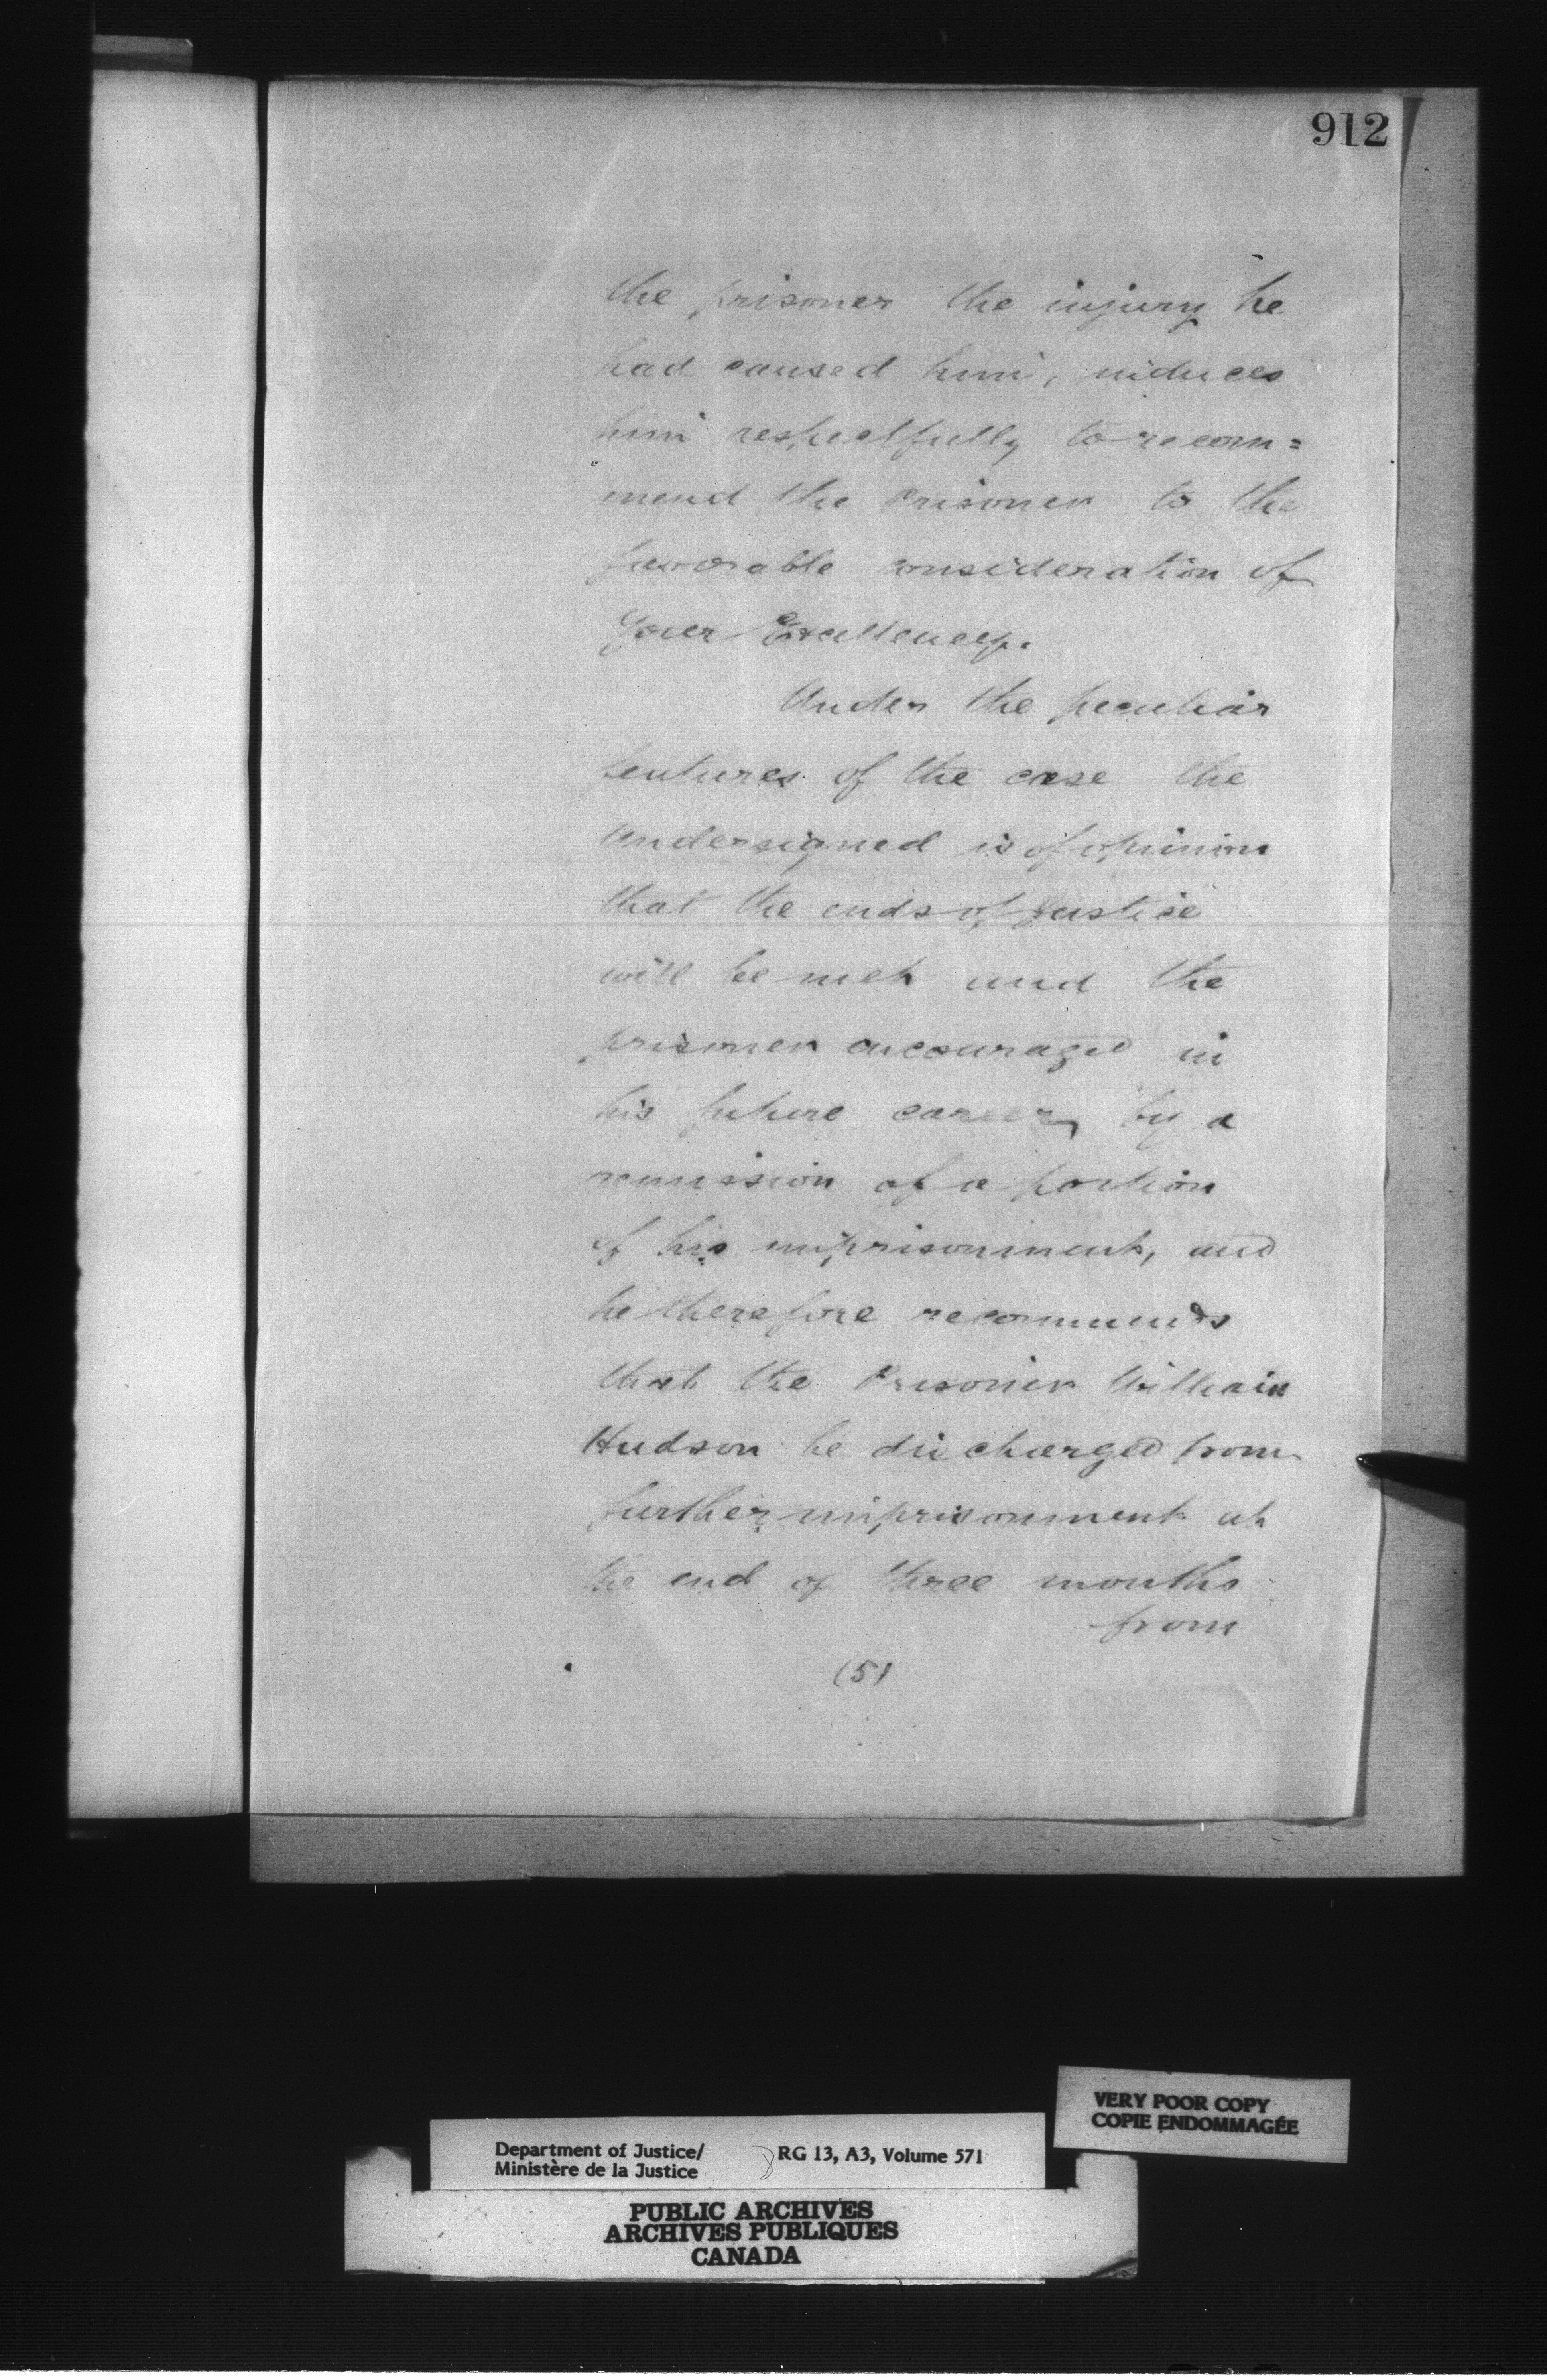 912
the prisoner the injury he
had caused him, induces
him respectfully to recom=
mend the Prisoner to the
favorable consideration of
Your Excellency.
Under the peculiar
features of the case the
undersigned is of opinion
that the ends of Justice
will be met and the
prisoner encouraged in
his future career, by a
remission of a portion
of his imprisonment, and
he therefore recommends
that the Prisoner William
Hudson be discharged from
further imprisonment at
the end of three months
from
(5)
VERY POOR COPY
COPIE ENDOMMAGÉE
Department of Justice/ RG 13, A3, Volume 571
Ministère de la Justice
PUBLIC ARCHIVES
ARCHIVES PUBLIQUES
CANADA